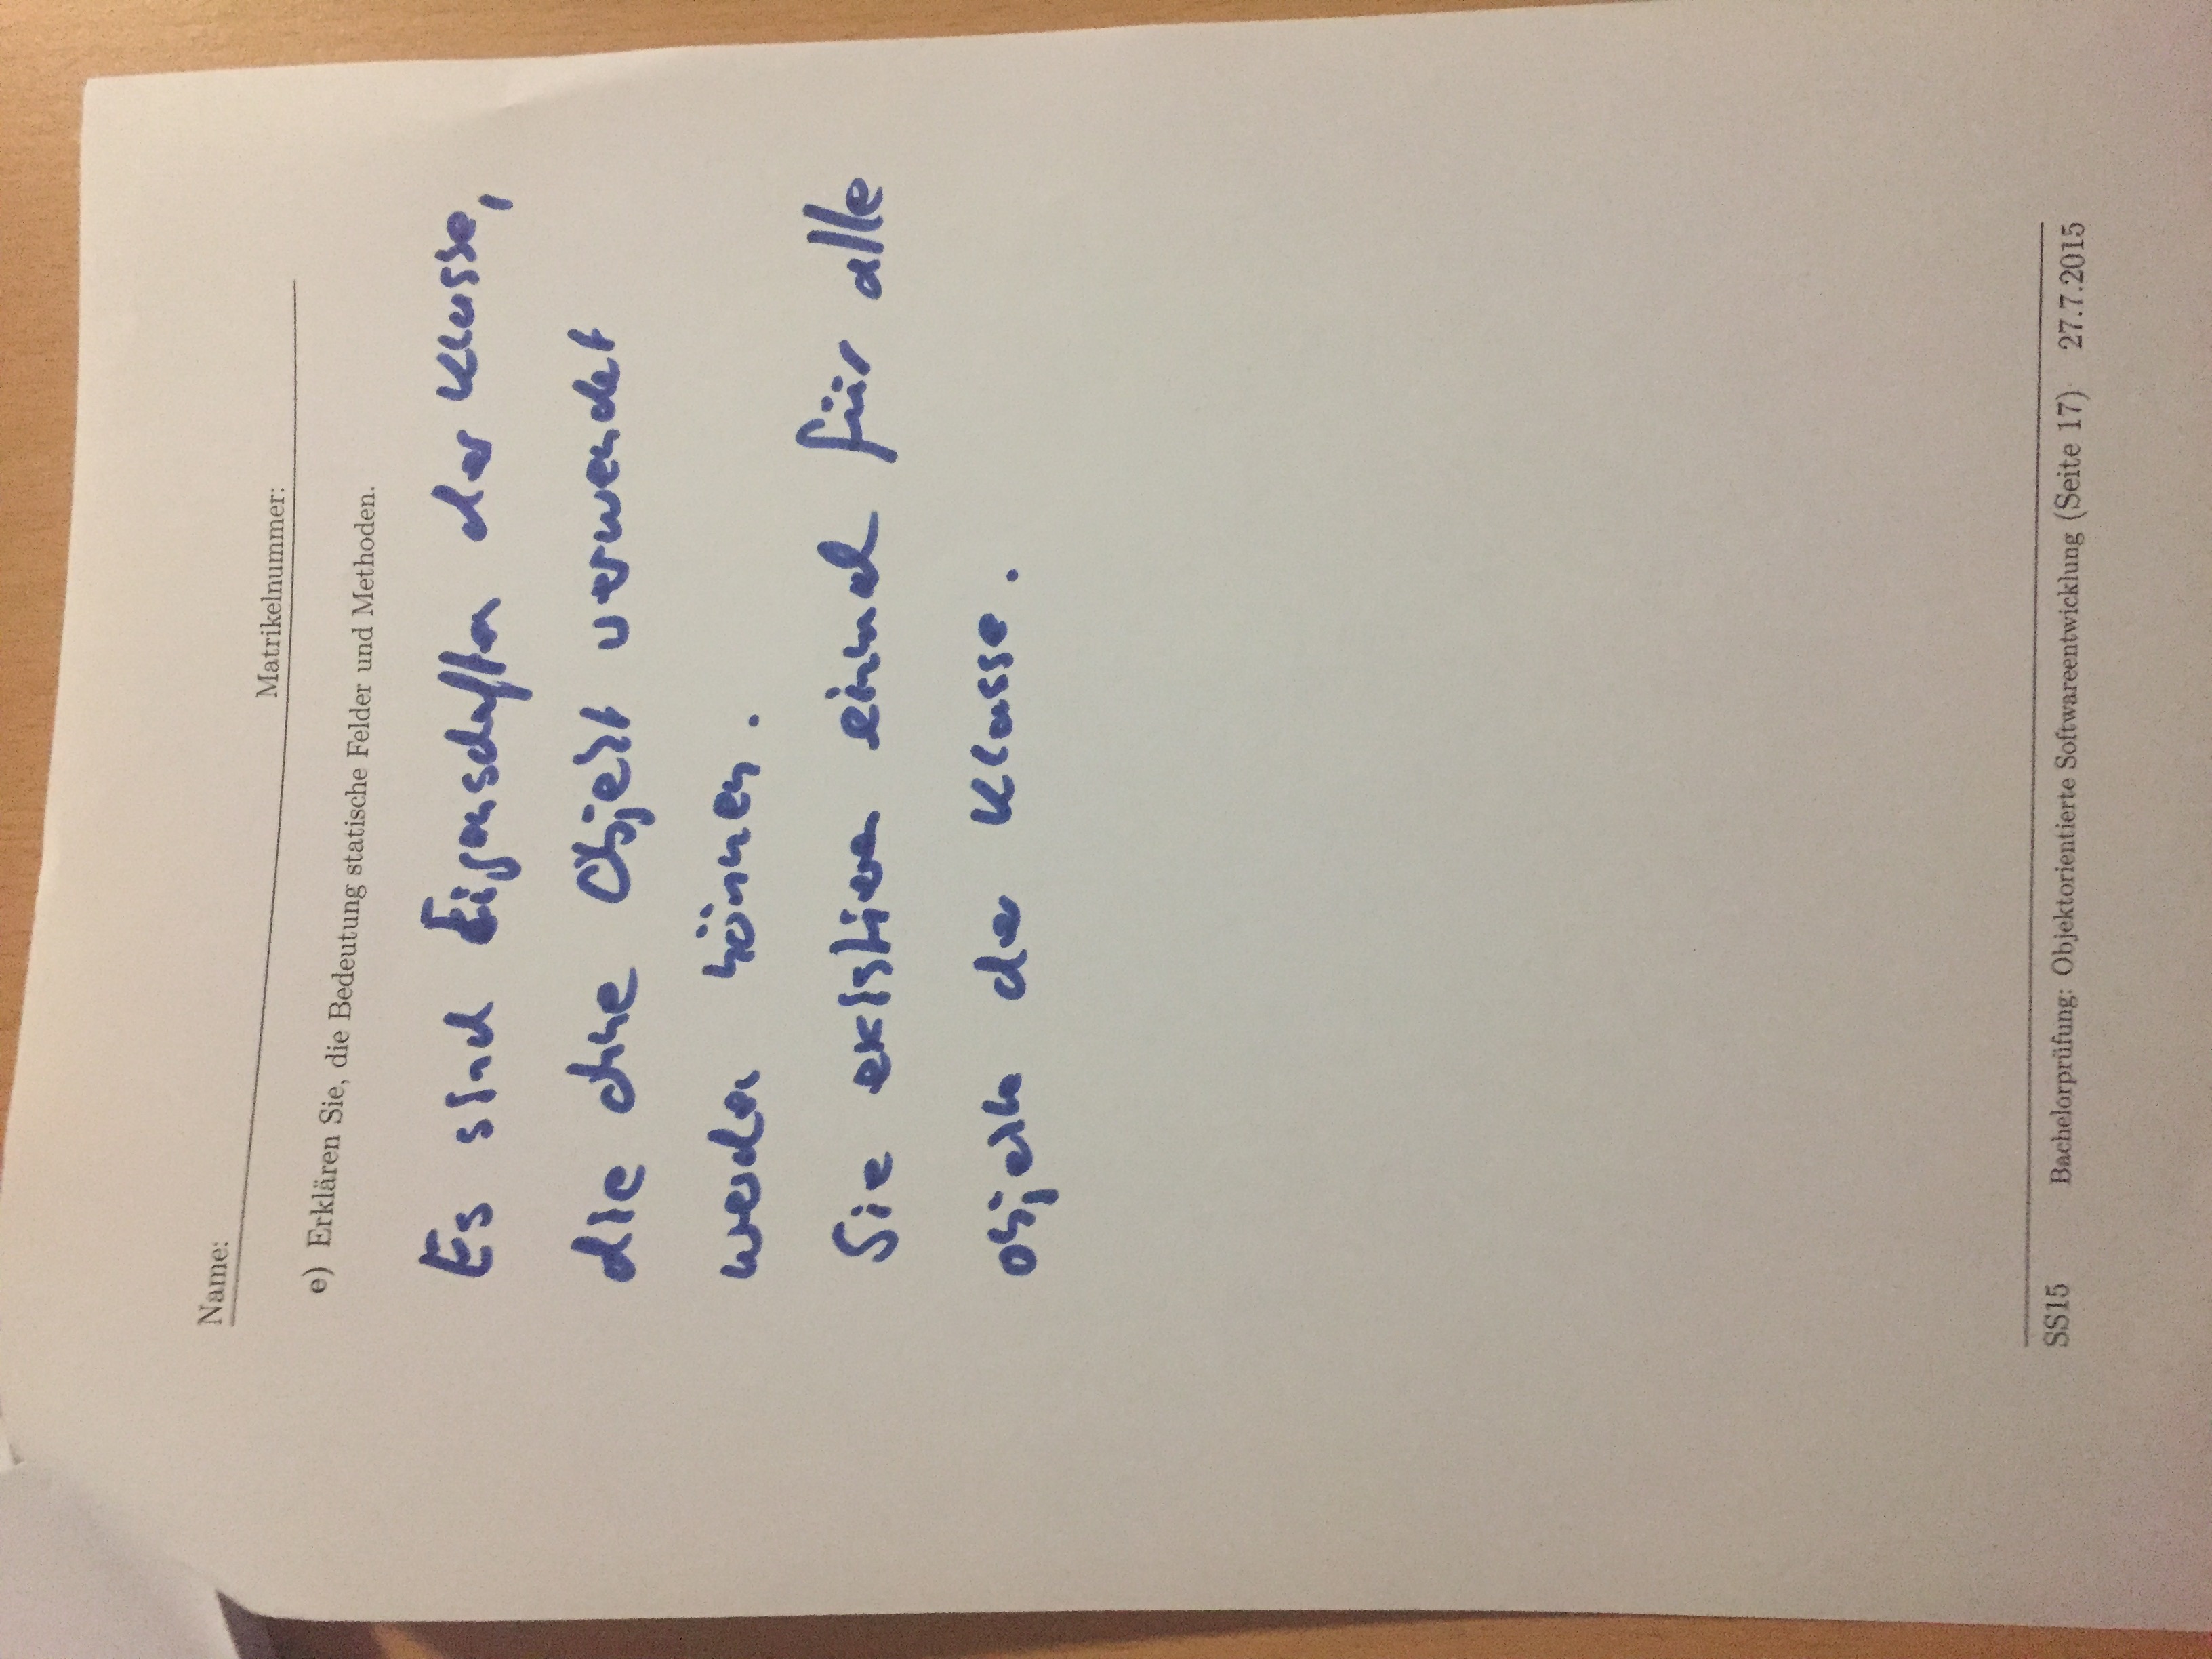 Name:
Matrikelnummer:
e) Erklären Sie, die Bedeutung statische Felder und Methoden.
Es sind Eigenschaften der Klasse,
die ohne Objekt verwendet
werden können.
Sie existieren einmal für alle
Objekte der Klasse.
SS15 Bachelorprüfung: Objektorientierte Softwareentwicklung (Seite 17) 27.7.2015